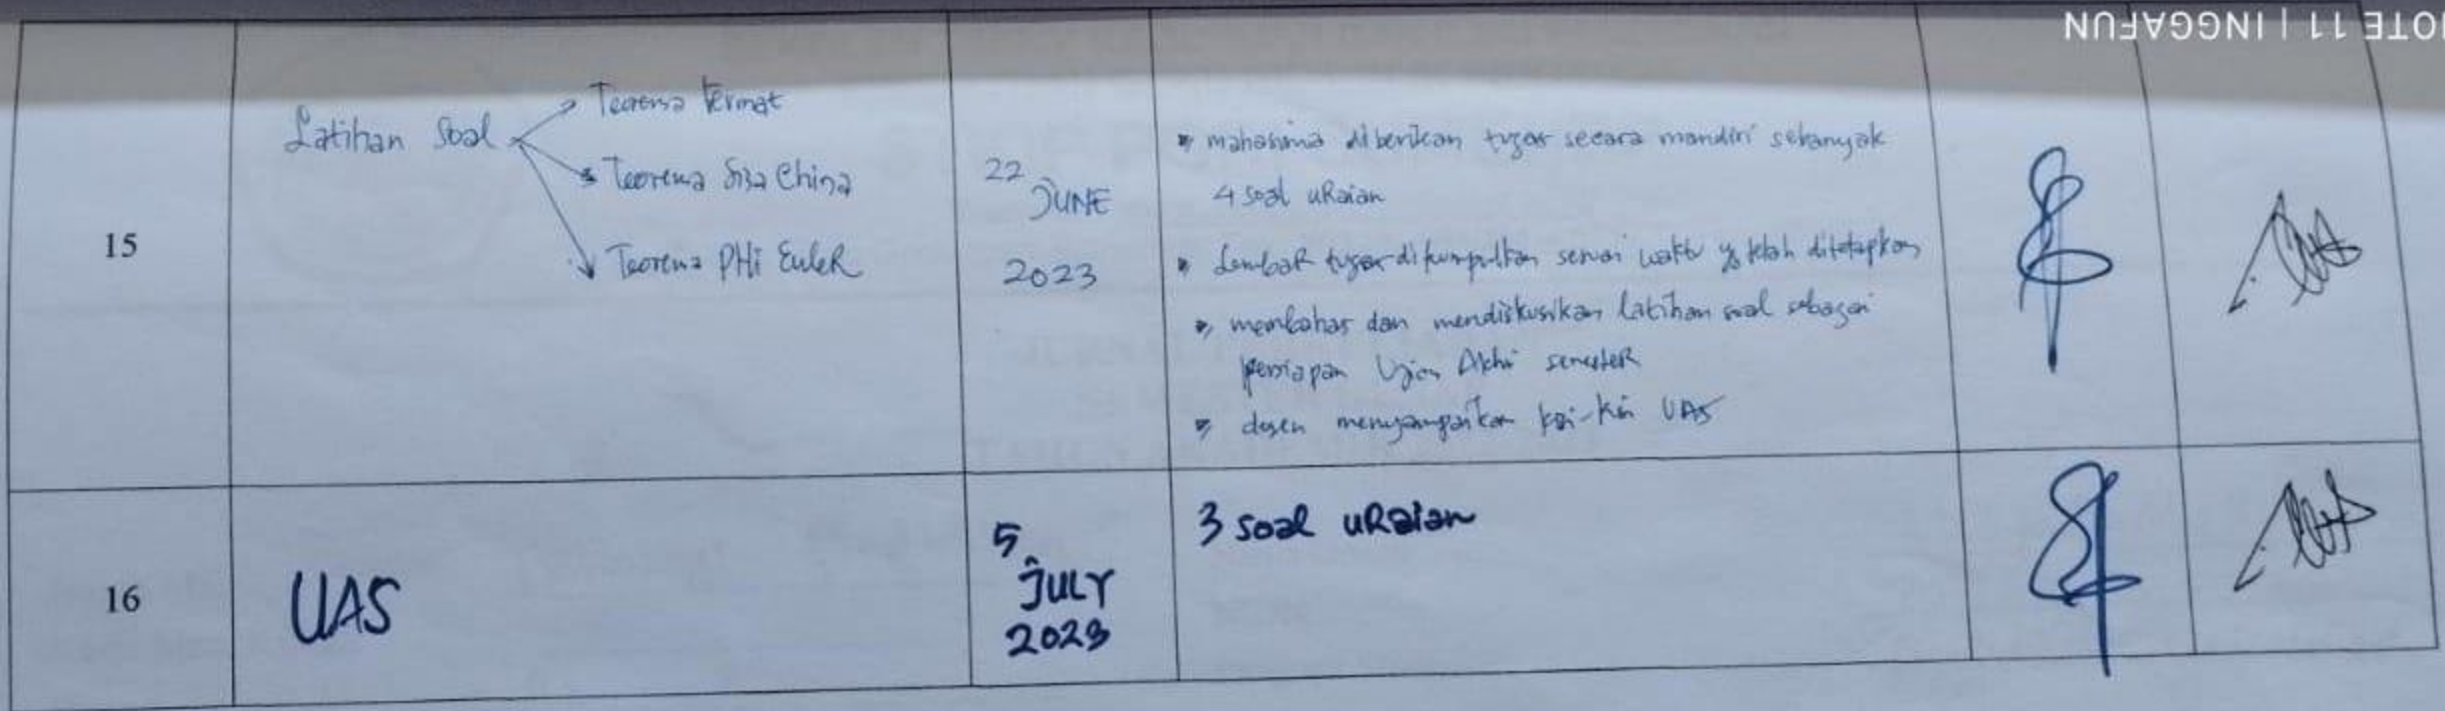 NOTE 11 | INGGAFUN
15
Latihan Soal
Teorema Fermat
Teorema Sisa China
Teorema PHi EuleR
22
JUNE
2023
mahasiswa diberikan tugas secara mandiri sebanyak
4 soal uRaian
LembaR tugas dikumpulkan sesuai waktu yg telah ditetapkan
membahas dan mendiskusikan Latihan soal sebagai
persiapan Ujian Akhir semesteR
dosen menyampaikan kisi-kisi UAS
16
UAS
5
JULY
2023
3 soal uRaian